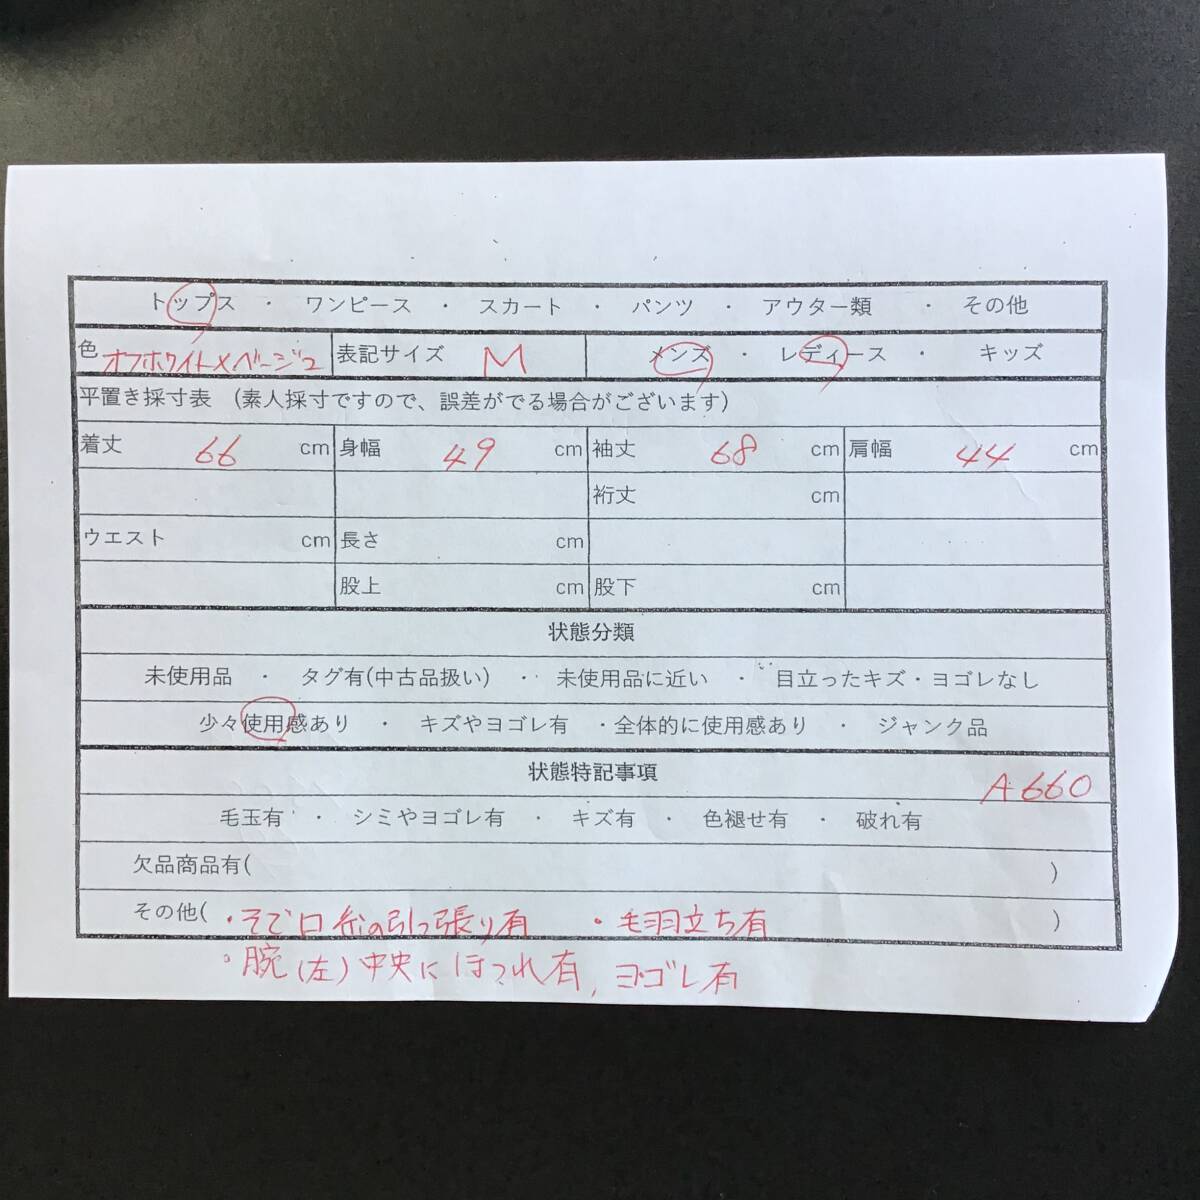 トップス ・ ワンピース ・ スカート ・ パンツ ・ アウター類 ・ その他
色 オフホワイト×ベージュ 表記サイズ M メンズ ・ レディース ・ キッズ
平置き採寸表 (素人採寸ですので、誤差がでる場合がございます)
着丈 66 cm 身幅 49 cm 袖丈 68 cm 肩幅 44 cm
裄丈 cm
ウエスト cm 長さ cm
股上 cm 股下 cm
状態分類
未使用品 ・ タグ有(中古品扱い) ・ 未使用品に近い ・ 目立ったキズ・ヨゴレなし
少々使用感あり ・ キズやヨゴレ有 ・全体的に使用感あり ・ ジャンク品
状態特記事項
A660
毛玉有 ・ シミやヨゴレ有 ・ キズ有 ・ 色褪せ有 ・ 破れ有
欠品商品有( )
その他( ・そで口糸の引っ張り有 ・毛羽立ち有 )
・腕(左)中央にほつれ有, ヨゴレ有